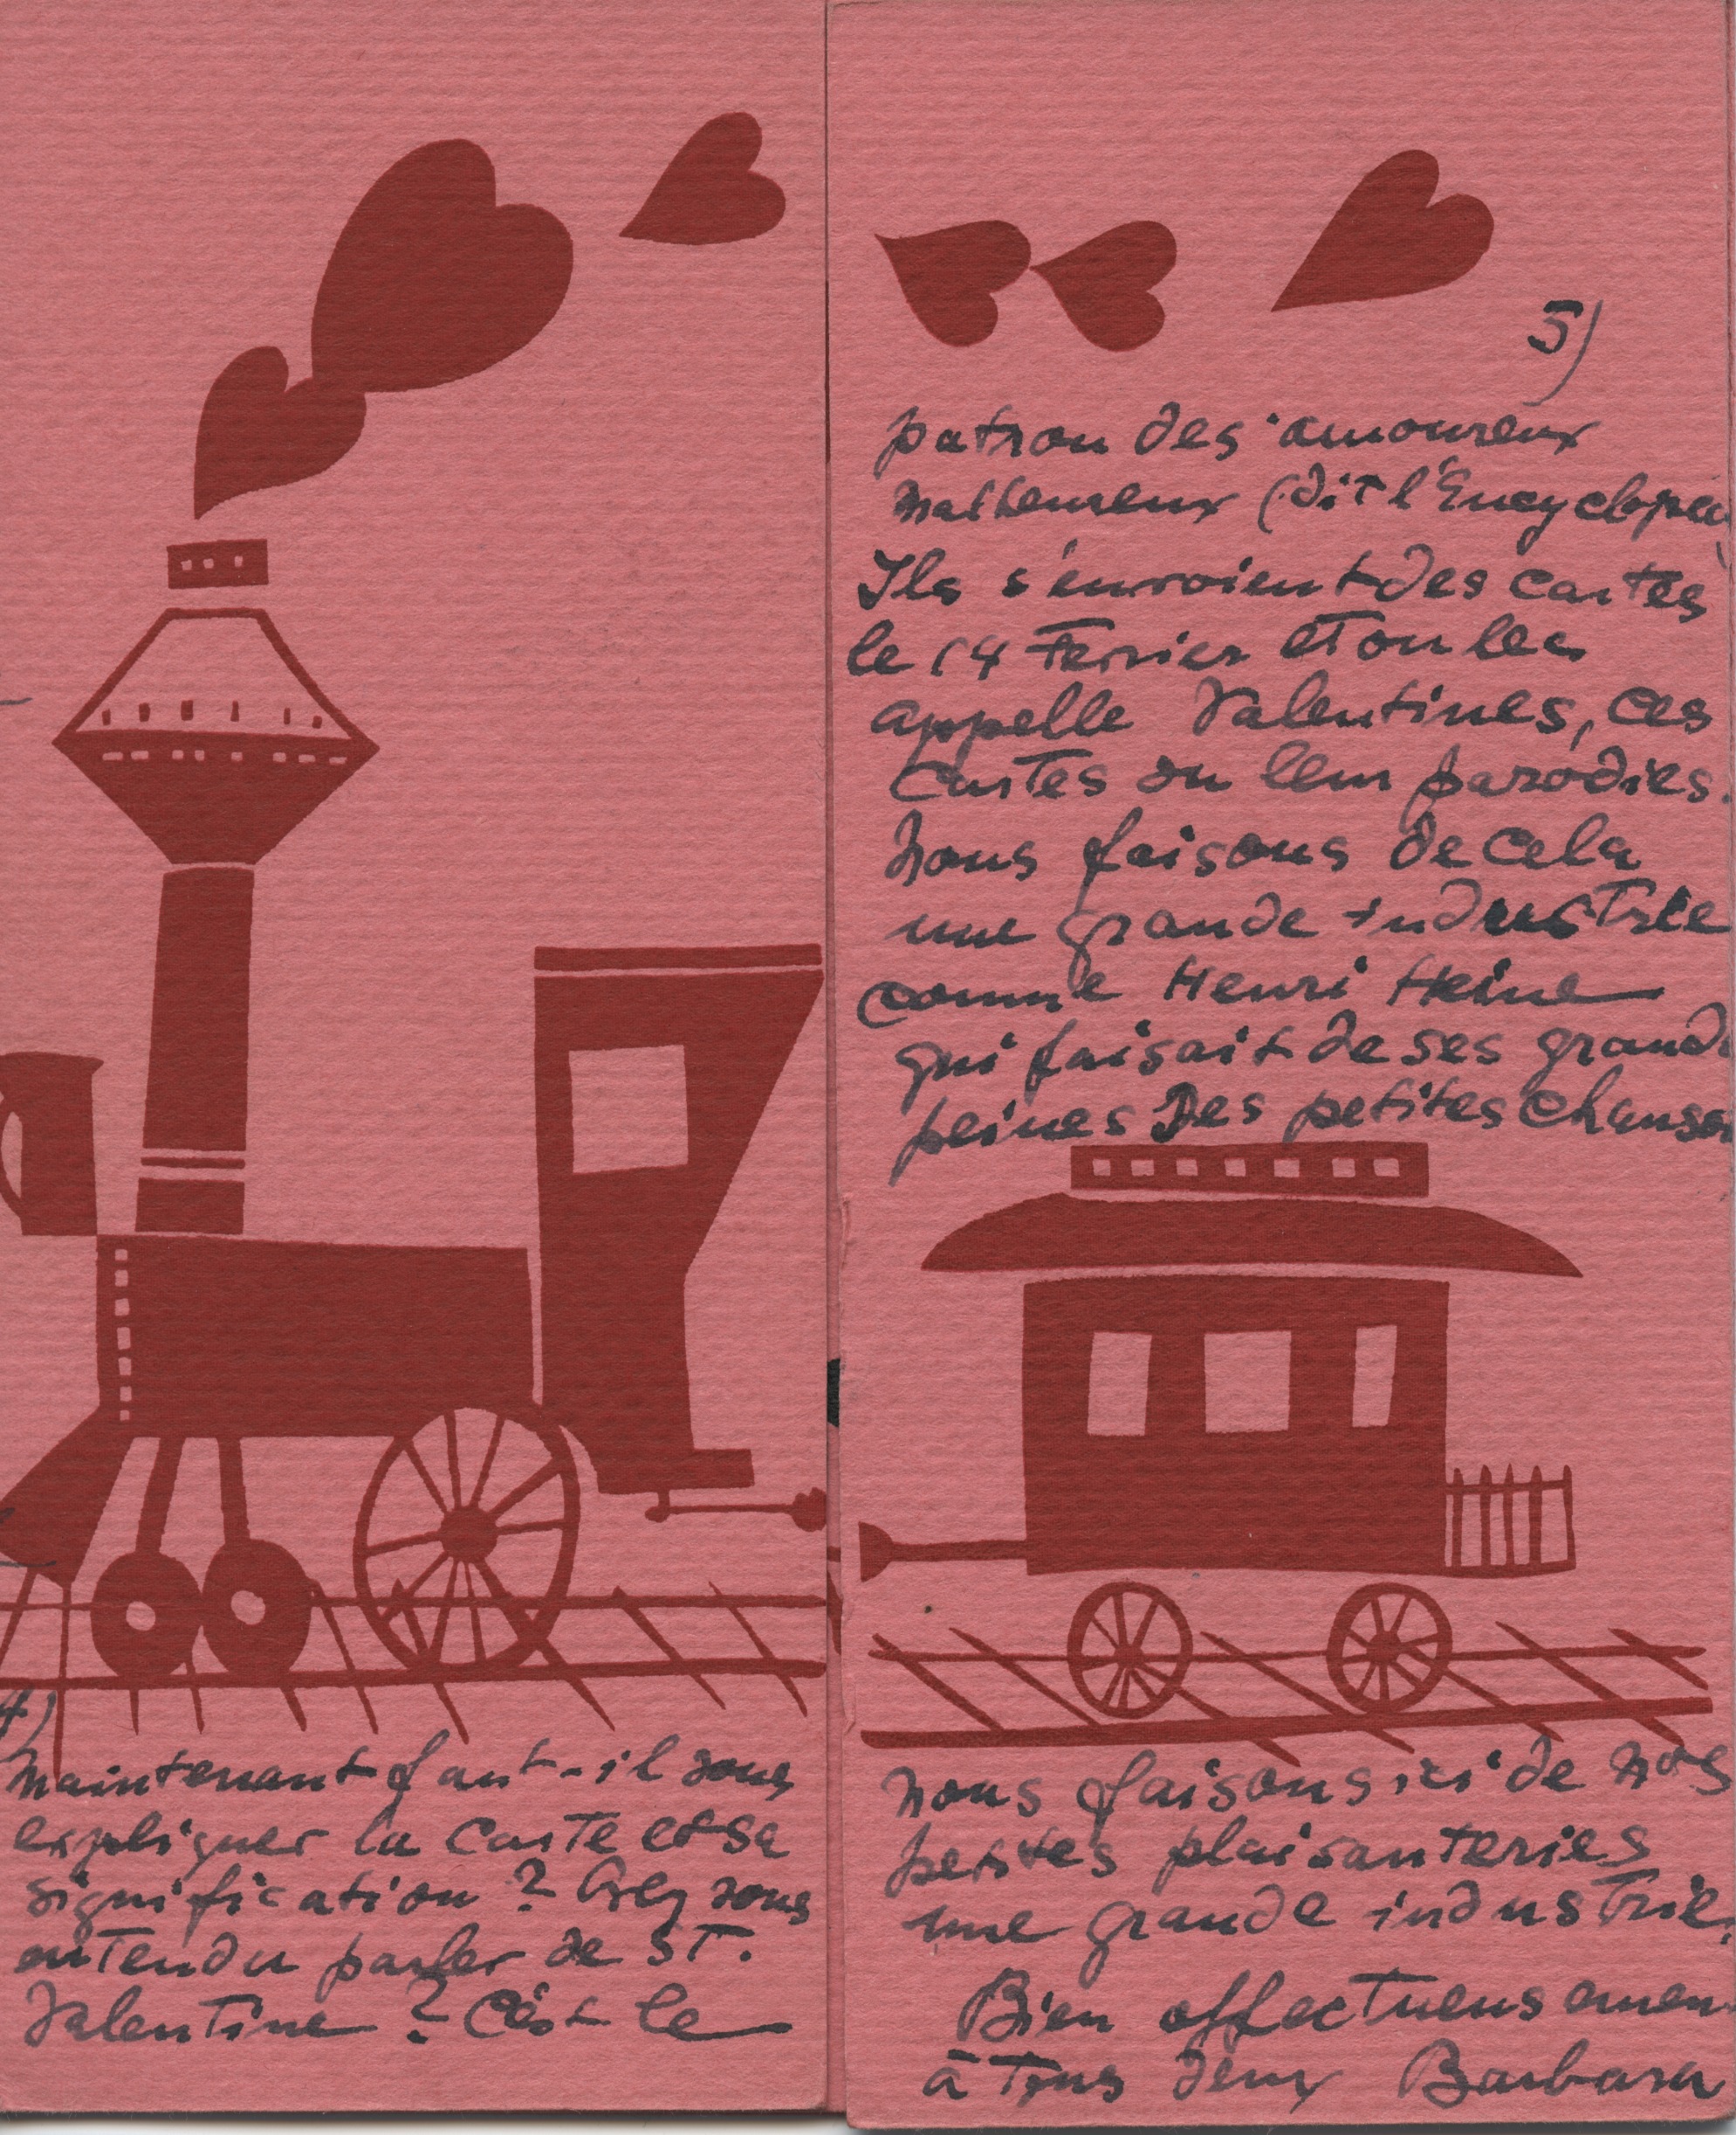 4)
Maintenant faut-il vous
expliquer la carte et sa
signification ? Avez vous
entendu parler de St.
Valentine ? C'est le
5)
patron des amoureux
malheureux (dit l'Encyclopedi
Ils s'envoient des cartes
le 14 Fevrier et on les
appelle Valentines, ces
cartes ou leur parodies.
Nous faisons de cela
une grande industrie
comme Henri Heine
qui faisait de ses grand
peines des petites chanson
Nous faisons ici de nos
petites plaisanteries
une grande industrie.
Bien affectueusemen
à tous deux Barbara